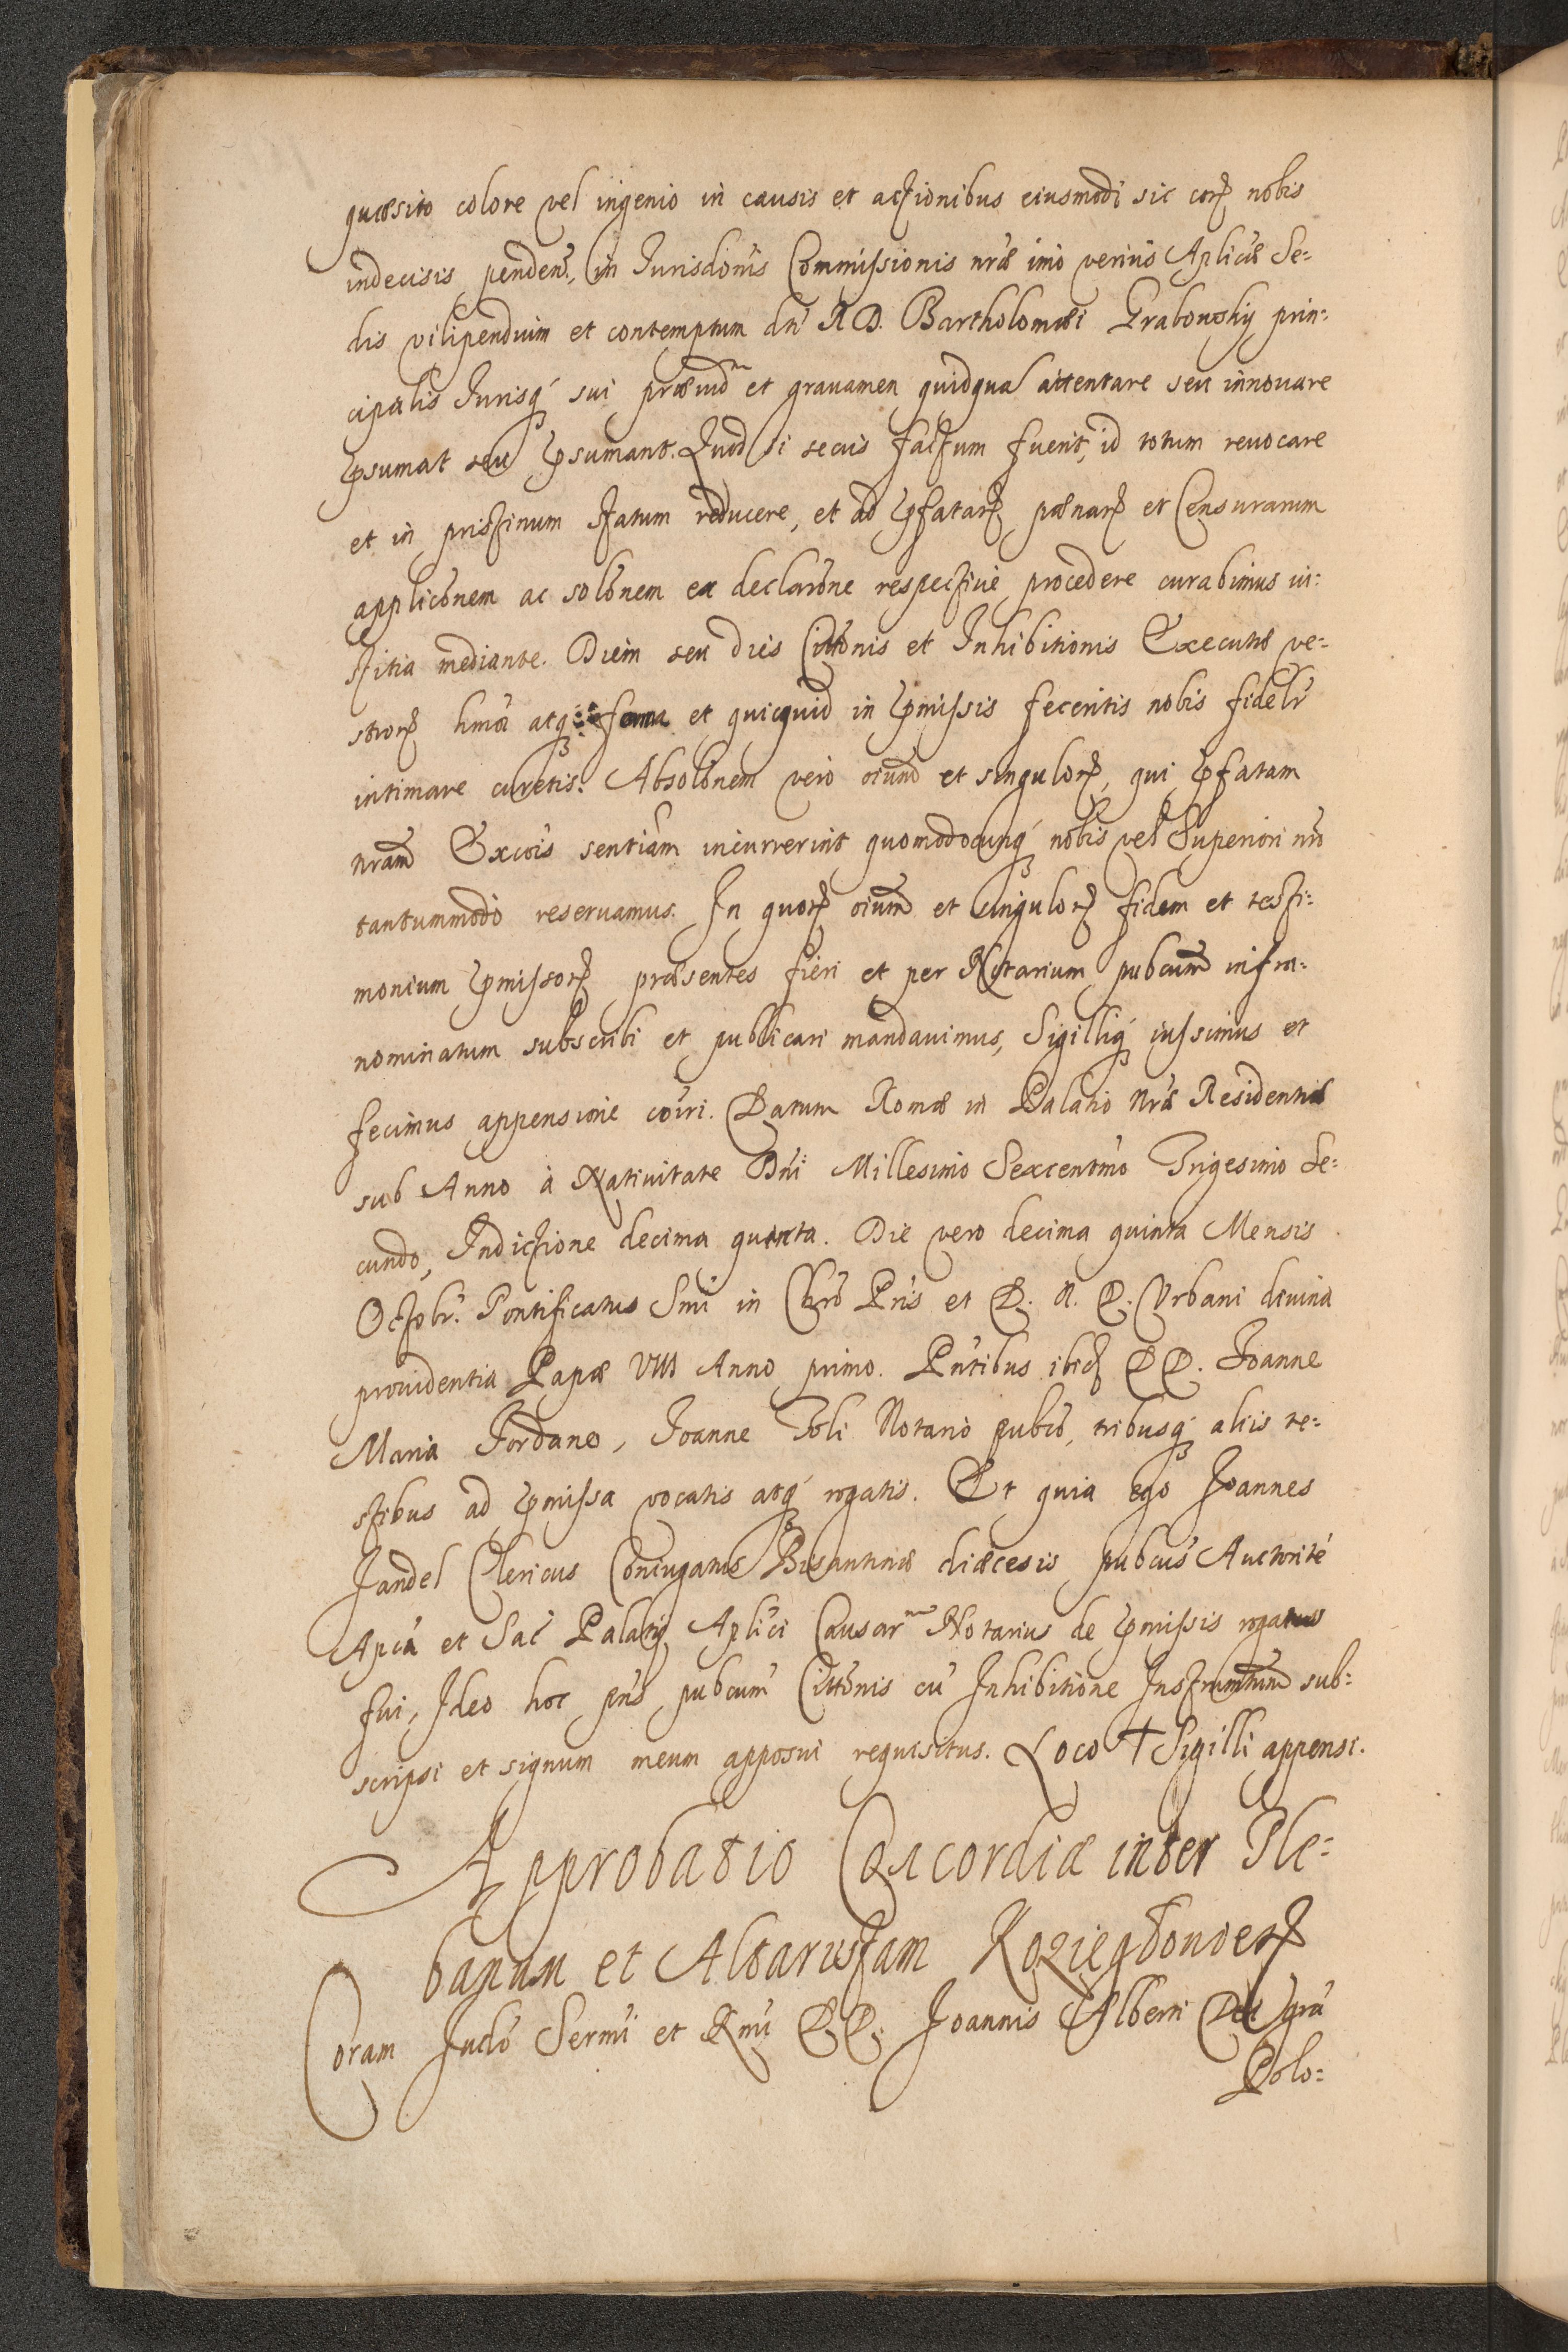 quæsito colore vel ingenio in causis et actionibus eiusmodi sic corꝝ nobis
indecisis penden̄, in Jurisdōnis Commissionis nræ imo verius Aplicæ Se=
dis vilipendium et contemptum dn̄i R D. Bartholomæi Grabowskij prin=
cipalis Jurisq́ꝫ sui præiudᵐ et grauamen quidqua attentare seu innouare
p̄sumat seu p̄sumant. Quod si secus factum fuerit, id totum reuocare
et in pristinum statum reducere, et ad p̄fatarꝝ pænarꝝ et Censurarum
applicōnem ac solōnem ea declarōne respectiue procedere curabimus iu=
stitia mediante. Diem seu dies Cittōnis et Inhibitionis Executæ ve=
strorꝝ hmōi atqꝫ forma et quicquid in p̄missis feceritis nobis fidelr̄
intimare curetis. Absolōnem vero oium̄ et singulorꝝ, qui p̄fatam
nram̄ Excōis sentiam̄ incurrerint quomodocunq́ꝫ nobis vel Superiori nrō
tantummodo reseruamus. In quorꝝ oium̄ et singulorꝝ fidem et testi=
monium p̄missorꝝ præsentes fieri et per Notarium pubcum̄ infra=
nominatum subscribi et publicari mandauimus, Sigilliq́ꝫ iussimus et
fecimus appensione cōiri. Datum Romæ in Palatio Nrǣ Residentiæ
sub Anno à Natiuitate Dn̄i Millesimo Sexcentm̄o Trigesimo Se=
cundo, Indictione decima quinta. Die vero decima quinta Mensis
Octobr̄. Pontificatus Smī in Chrō Pr̄is et D. N. D. Vrbani diuina
prouidentia Papæ VIII Anno primo. Pn̄tibus ibidꝫ DD. Joanne
Maria Jordano, Joanne Toli Notario pubcō, tribusq́ꝫ aliis te=
stibus ad p̄missa vocatis atq́ꝫ rogatis. Et quia ego Joannes
Jandel Clericus Coniugatus Bisantinæ diæcesis pubcus̄ Auctoritē
Apcā et Sac̄ Palatij Aplici Causarᵐ Notarius de p̄missis rogatus
fui, Ideo hoc pn̄s pubcum̄ Cittōnis cū Inhibitione Instrumentum̄ sub=
scripsi et signum meum apposui requisitus. Loco ✝ Sigilli appensi.
Approbatio Concordiæ inter Ple=
banum et Altaristam Koziegłouienꝫ
Coram Judcō Sermī et Rmī DD. Joannis Alberti Dei grā
Polo=